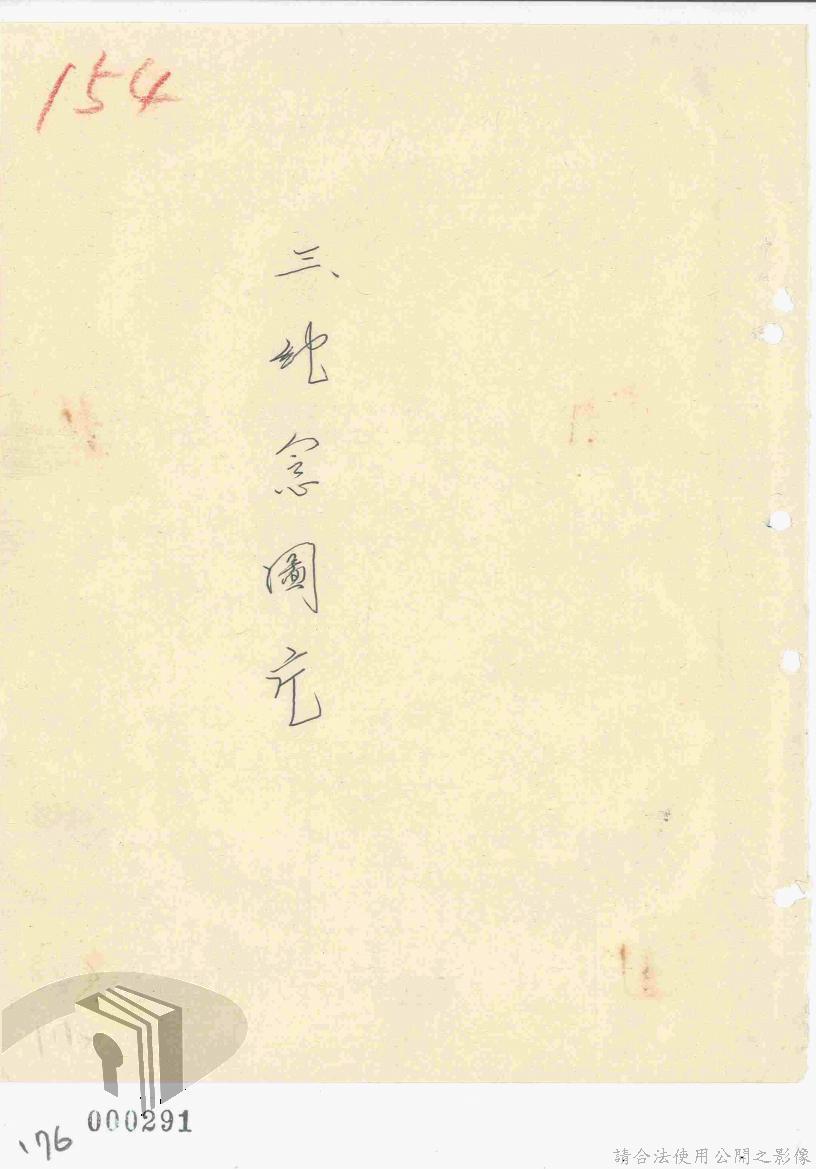 154
三、紀念圖
000291
'76
請合法使用公開之影像